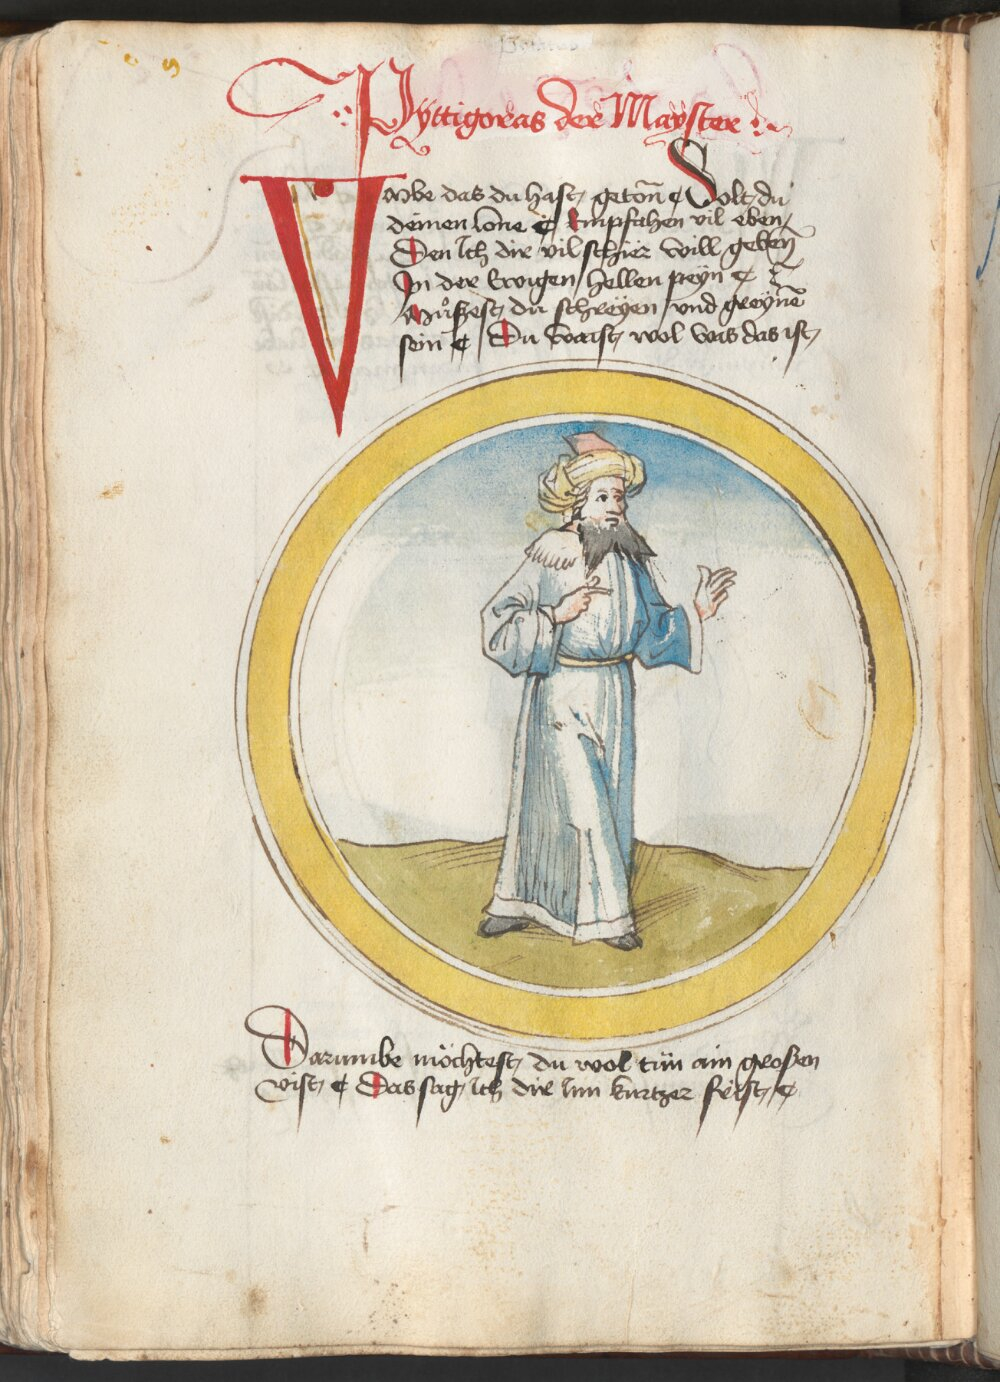 Pyttigoras der Mayster
Vmbe das du hast getoñ ¢ Solt du
deinen lone ¢ Empfahen vil eben
Den Ich dir vil schier will geben
In der Ewigen hellen peyn ¢
Můßest du schreyen vnd greynē
sein ¢ Du waist wol was das ist
Darumbe möchtest du wol tůn ain großen
vist ¢ Das sag Ich dir Inn kurtzer frist ¢